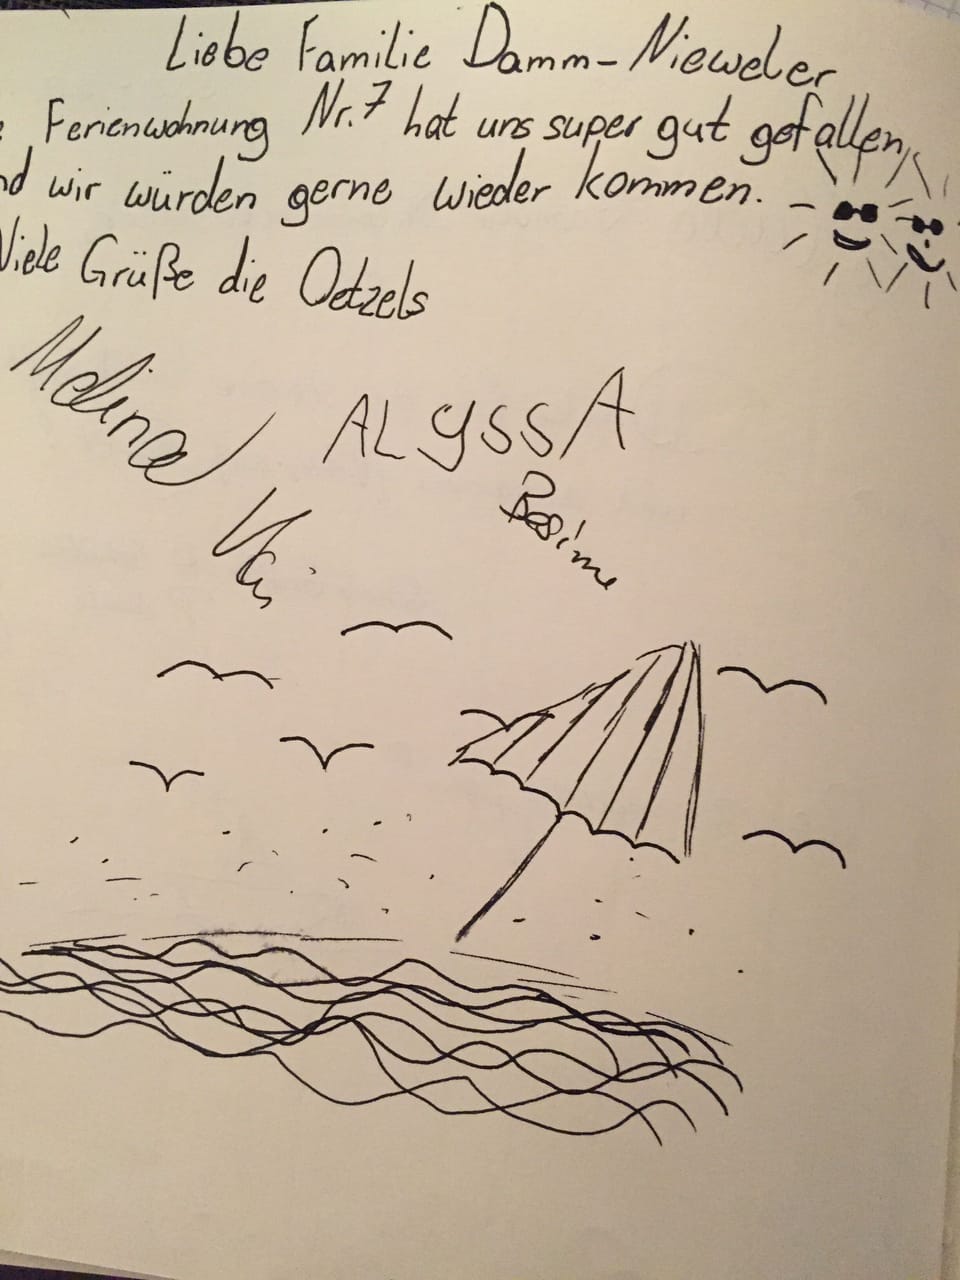 Liebe Familie Damm-Nieweler
Ferienwohnung Nr.7 hat uns super gut gefallen,
nd wir würden gerne wieder kommen.
Viele Grüße die Oetzels
Melina
ALYSSA